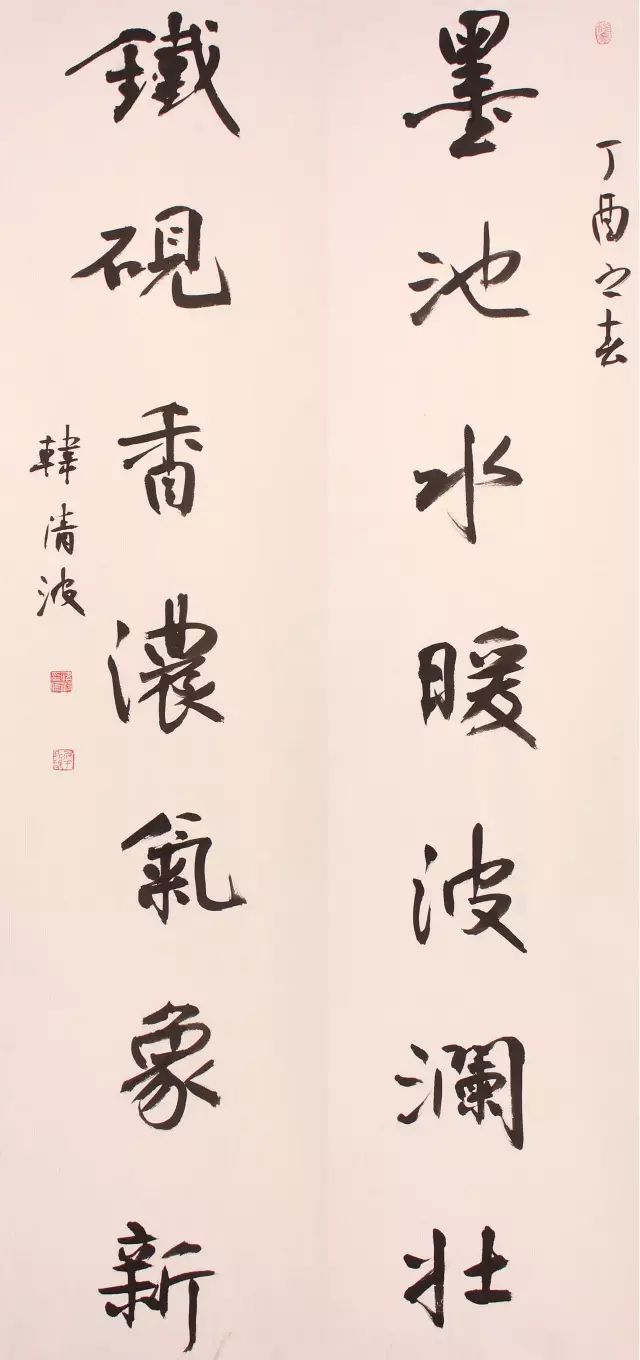 丁酉之春
墨池水暖波瀾壮
鐵硯香濃氣象新
韓清波